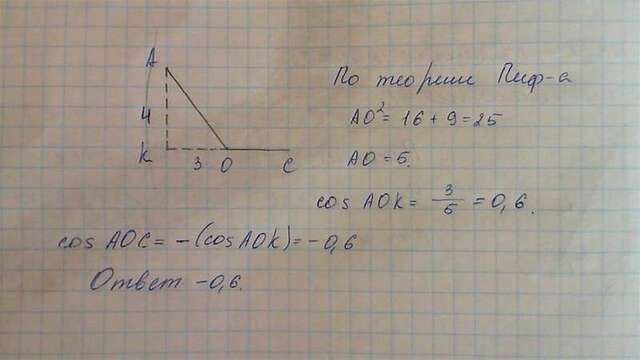 A
4
K 3 O C
По теореме Пиф-а
AO² = 16 + 9 = 25
AO = 5.
cos AOK = 3/5 = 0,6.
cos AOC = -(cos AOK) = -0,6
Ответ -0,6.